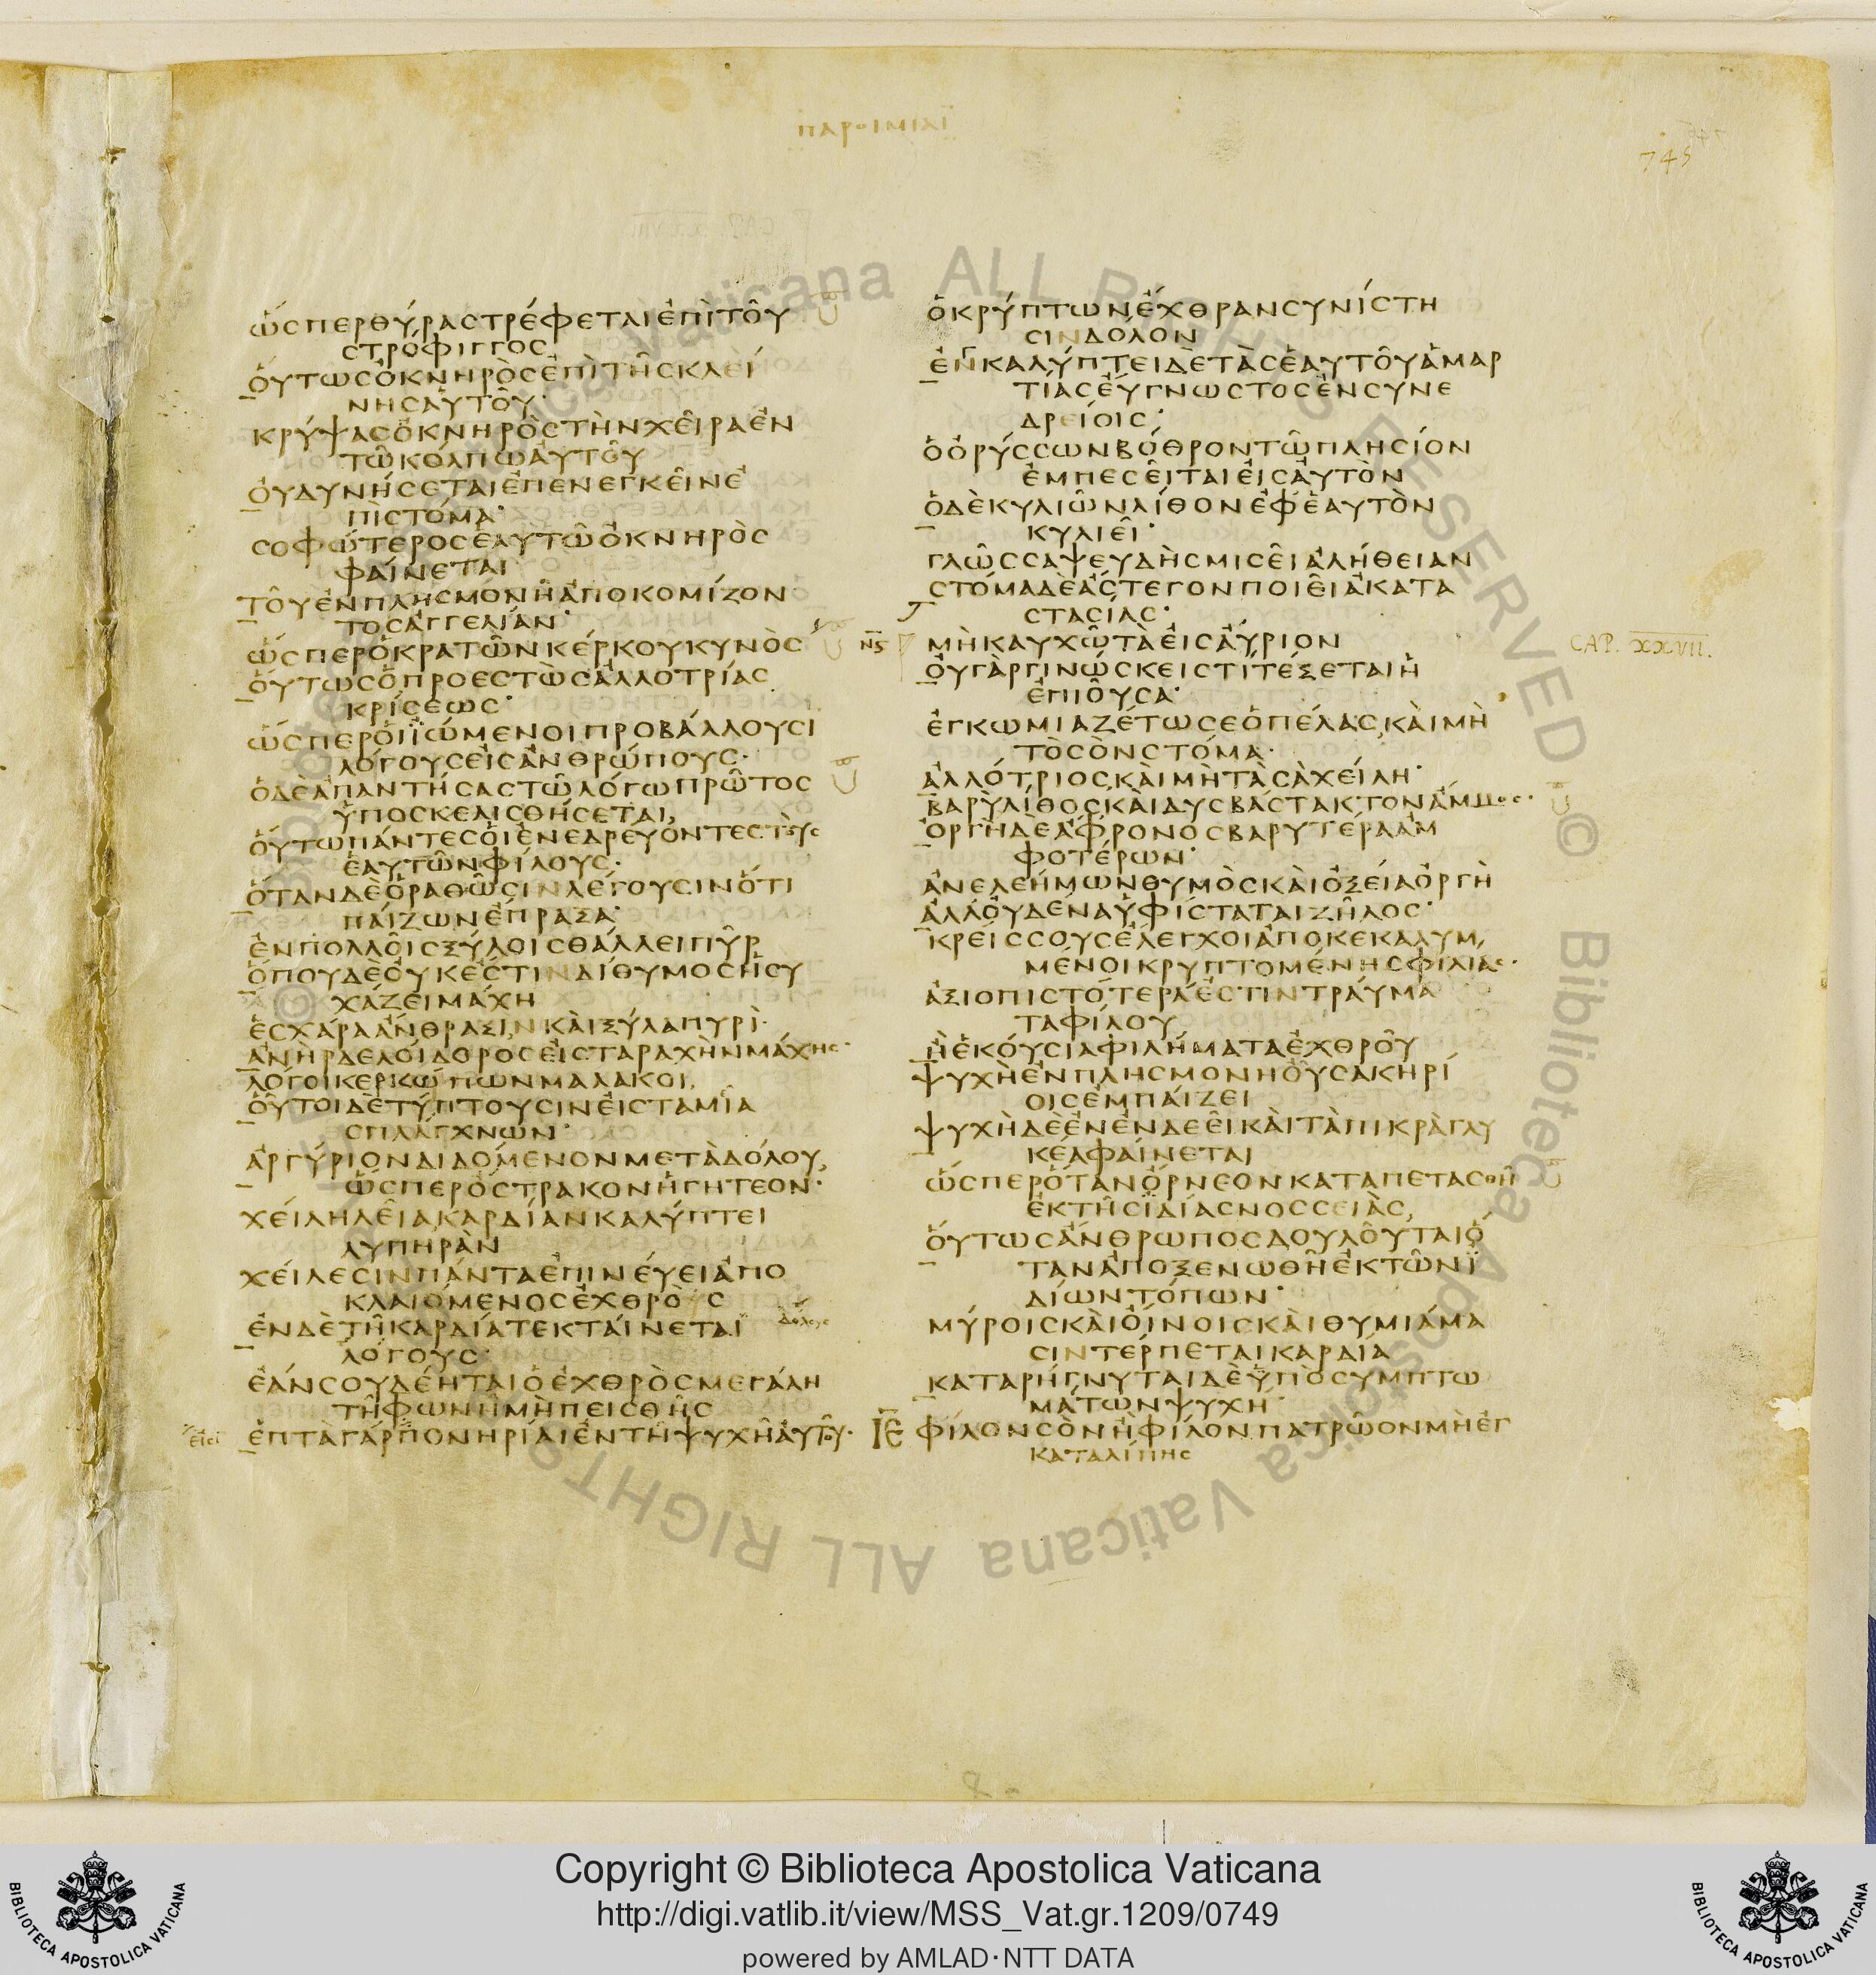 ΠΑΡΟΙΜΙΑΙ
745
ὥσπερθύραστρέφεταιἐπὶτοῦ
στρόφιγγος
οὕτωσὀκνηρὸσἐπὶτῆσκλεί
νησαὐτοῦ·
κρύψασὀκνηρὸστὴνχεῖραἐν
τῶκόλπωαὐτοῦ
οὐδυνήσεταιἐπενεγκεῖνἐ
πιστόμα·
σοφώτεροσἑαυτῶὀκνηρὸς
φαίνεται
τοῦἐνπλησμονῆἀποκομίζον
τοσἀγγελίαν·
ὥσπερὁκρατῶνκέρκουκυνὸς
οὕτωσὁπροεστὼσἀλλοτρίας
κρίσεως·
ὥσπεροἱϊώμενοιπροβάλλουσι
λόγουσεἰσἀνθρώπους·
ὁδὲἀπαντήσαστῶλόγωπρῶτος
ὑποσκελισθήσεται,
οὕτωπάντεσοἱἐνεδρεύοντεστοὺς
ἑαυτῶνφίλους·
ὅτανδὲὁραθῶσινλέγουσινὅτι
παίζωνἔπραξα·
ἐνπολλοῖσξύλοισθάλλειπῦρ
ὅπουδὲοὐκέστινδίθυμοσἡσυ
χάζειμάχη
ἐσχάραἄνθραξινκαὶξύλαπυρὶ·
ἀνὴρδελοίδοροσεἰσταραχὴνμάχης·
λόγοικερκώπωνμαλακοι,
οὗτοιδὲτύπτουσινεἰσταμῖα
σπλάγχνων·
ἀργύριονδιδόμενονμετὰδόλου,
ὥσπερὄστρακονἡγητεον·
χείληλεῖακαρδίανκαλύπτει
λυπηρὰν
χείλεσινπάνταἐπινεύειἀπο
κλαιόμενοσἐχθρὸς
ἐνδὲτῆκαρδίατεκταίνεται δόλους
λόγους·
ἐάνσουδέηταιὁἐχθρὸσμεγάλη
τῆφωνῆμὴπεισθῆς
εἰσι ἑπτὰγάρπονηρίαιἐντῆψυχῆαὐτοῦ·
ὁκρύπτωνἔχθρανσυνίστη
σινδόλον
ἐνκαλύπτειδὲτὰσἑαυτοῦἁμαρ
τίασεὔγνωστοσἐνσυνε
δρείοις·
ὁὀρύσσωνβόθροντῶπλησίον
ἐμπεσεῖταιεἰσαὐτὸν
ὁδὲκυλιῶνλίθονἐφἑαυτὸν
κυλιεῖ·
γλῶσσαψευδὴσμισεῖἀλήθειαν
στόμαδὲἄστεγονποιεῖἀκατα
στασίας·
ΝϚ μὴκαυχῶτὰεἰσαύριον CAP. XXVII.
οὐγὰργινώσκειστίτέξεταιἡ
ἐπιοῦσα·
ἐγκωμιαζέτωσεὁπέλασ,καὶμὴ
τὸσὸνστόμα·
ἀλλότριοσκαὶμὴτὰσὰχείλη·
βαρὺλίθοσκαὶδυσβάστακτονἄμμος·
ὀργὴδὲἄφρονοσβαρυτέραἀμ
φοτέρων·
ἀνελεήμωνθυμὸσκαὶὀξείαὀργὴ
ἀλλοὐδέναὑφίσταταιζῆλος·
κρείσσουσἔλεγχοιἀποκεκαλυμ,
μένοικρυπτομένησφιλίας·
ἀξιοπιστότεράἐστιντραύμα
ταφίλου
ἢἑκούσιαφιλήματαἐχθροῦ
ψυχὴἐνπλησμονῆοὖσακηρί
οισἐμπαίζει
ψυχῆδὲἐνἐνδεεῖκαὶτὰπικρὰγλυ
κέαφαίνεται
ὥσπερὅτανὄρνεονκαταπετασθῆ
ἐκτῆσϊδίασνοσσειᾶς,
οὕτωσἄνθρωποσδουλοῦταιὅ
τανἀποξενωθῆἐκτῶνϊ
δίωντόπων·
μύροισκαὶοἴνοισκαὶθυμιάμα
σιντέρπεταικαρδία
καταρήγνυταιδὲὑπὸσυμπτω
μάτωνψυχή·
ΙΕ φίλονσὸνἢφίλονπατρῶονμὴἐγ
καταλίπης
Copyright © Biblioteca Apostolica Vaticana
http://digi.vatlib.it/view/MSS_Vat.gr.1209/0749
powered by AMLAD·NTT DATA
BIBLIOTECA APOSTOLICA VATICANA
BIBLIOTECA APOSTOLICA VATICANA
© Biblioteca Apostolica Vaticana ALL RIGHTS RESERVED